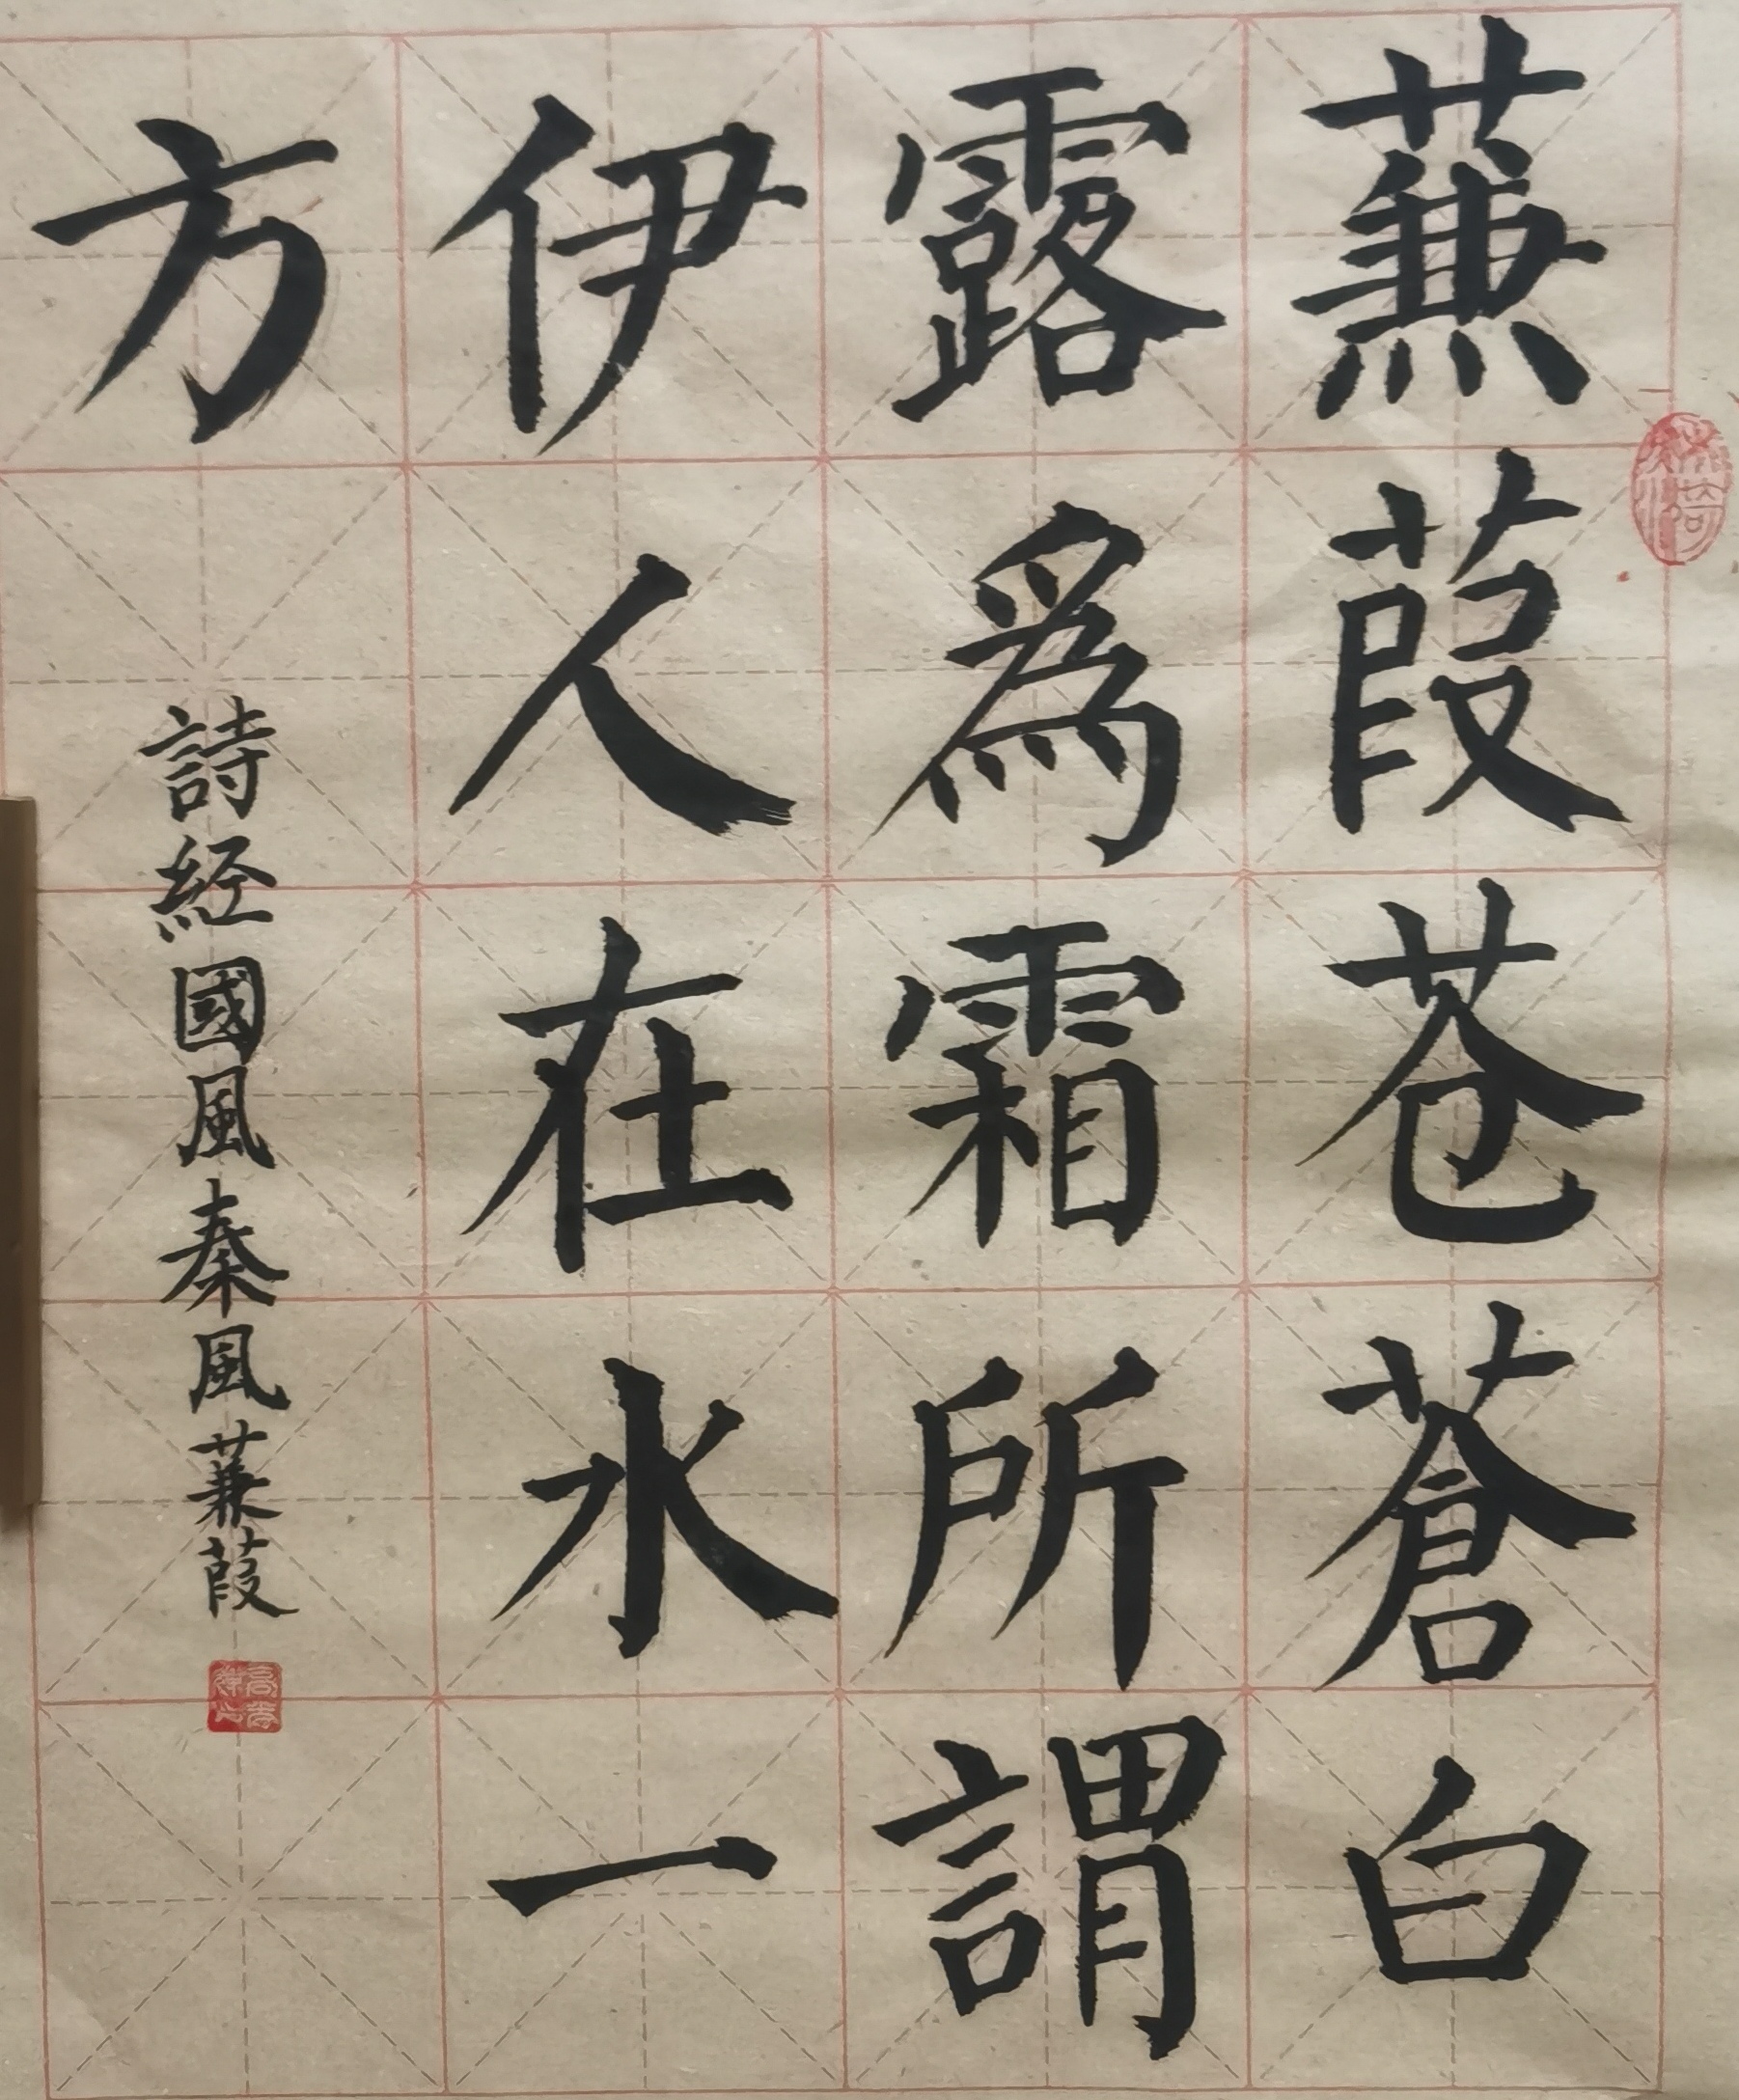 蒹葭苍蒼白
露為霜所謂
伊人在水一
方
詩经國風秦風蒹葭